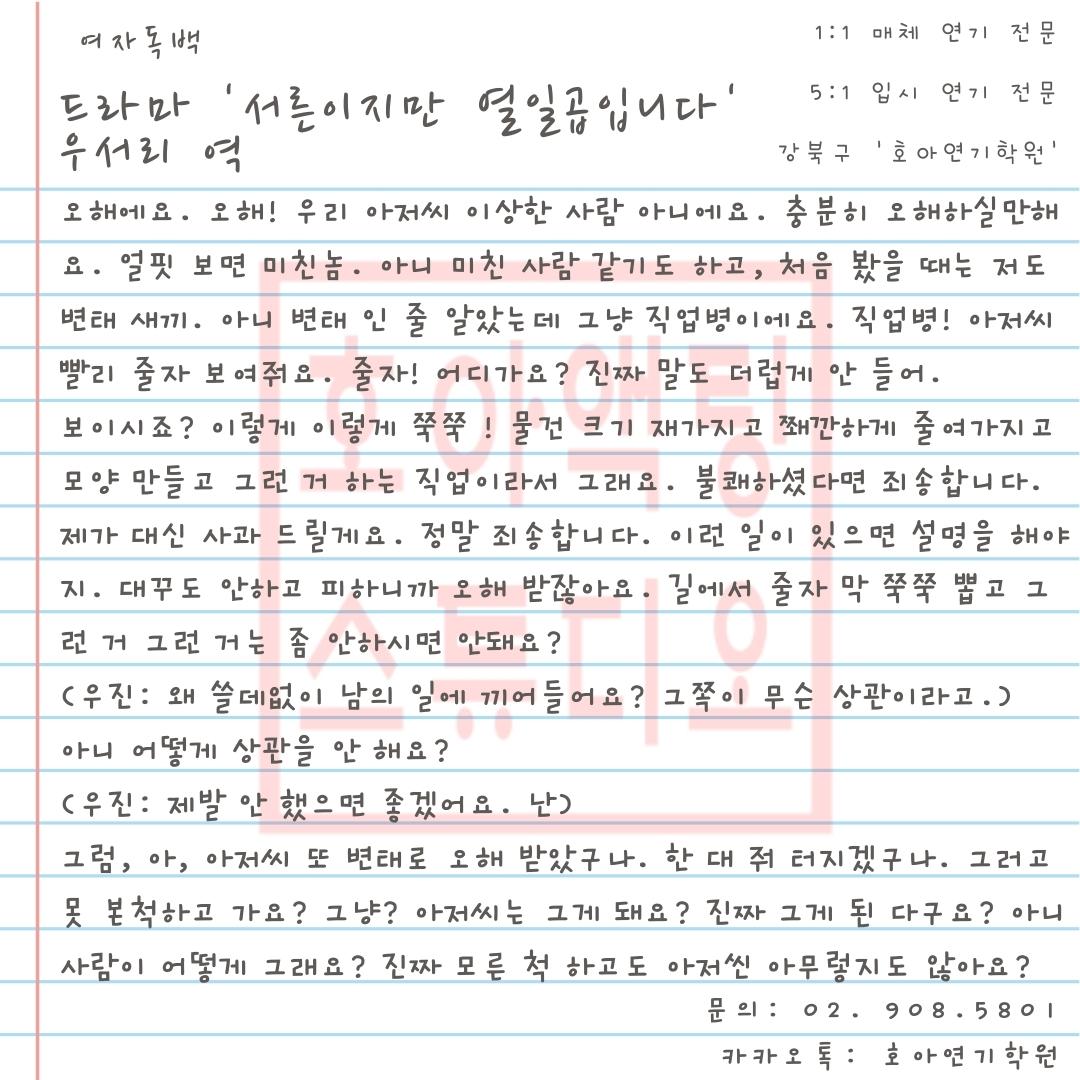 여자독백
1:1 매체 연기 전문
드라마 '서른이지만 열일곱입니다'
5:1 입시 연기 전문
우서리 역
강북구 '호아연기학원'
오해에요. 오해! 우리 아저씨 이상한 사람 아니에요. 충분히 오해하실만해
요. 얼핏 보면 미친놈. 아니 미친 사람 같기도 하고, 처음 봤을 때는 저도
변태 새끼. 아니 변태 인 줄 알았는데 그냥 직업병이에요. 직업병! 아저씨
빨리 줄자 보여줘요. 줄자! 어디가요? 진짜 말도 더럽게 안 들어.
보이시죠? 이렇게 이렇게 쭉쭉 ! 물건 크기 재가지고 쨰깐하게 줄여가지고
모양 만들고 그런 거 하는 직업이라서 그래요. 불쾌하셨다면 죄송합니다.
제가 대신 사과 드릴게요. 정말 죄송합니다. 이런 일이 있으면 설명을 해야
지. 대꾸도 안하고 피하니까 오해 받잖아요. 길에서 줄자 막 쭉쭉 뽑고 그
런 거 그런 거는 좀 안하시면 안돼요?
(우진: 왜 쓸데없이 남의 일에 끼어들어요? 그쪽이 무슨 상관이라고.)
아니 어떻게 상관을 안 해요?
(우진: 제발 안 했으면 좋겠어요. 난)
그럼, 아, 아저씨 또 변태로 오해 받았구나. 한 대 줘 터지겠구나. 그러고
못 본척하고 가요? 그냥? 아저씨는 그게 돼요? 진짜 그게 된 다구요? 아니
사람이 어떻게 그래요? 진짜 모른 척 하고도 아저씬 아무렇지도 않아요?
문의: 02. 908.5801
카카오톡: 호아연기학원
호아액팅
스튜디오